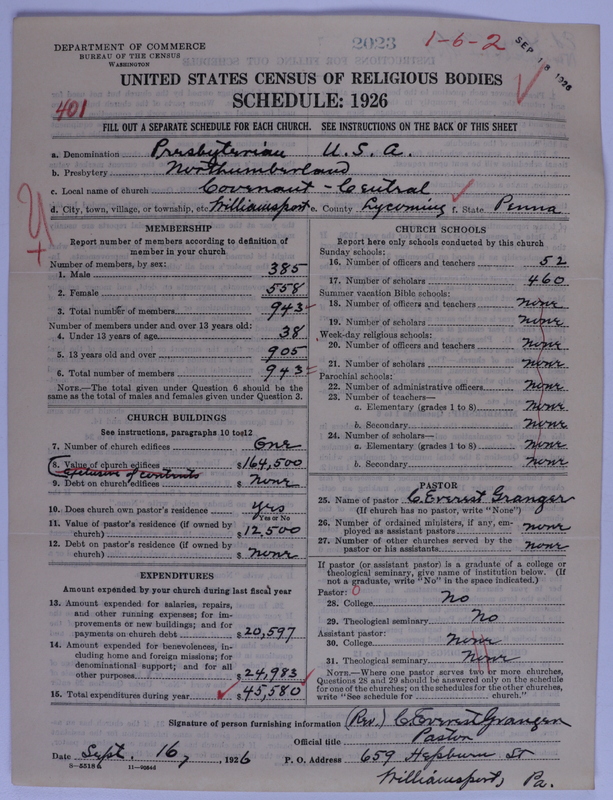 2023
1-6-2
SEP 18 1926
DEPARTMENT OF COMMERCE
BUREAU OF THE CENSUS
WASHINGTON
UNITED STATES CENSUS OF RELIGIOUS BODIES
SCHEDULE: 1926
401
FILL OUT A SEPARATE SCHEDULE FOR EACH CHURCH. SEE INSTRUCTIONS ON THE BACK OF THIS SHEET
a. Denomination Presbyterian U. S. A.
b. Presbytery Northumberland
c. Local name of church Covenant - Central
d. City, town, village, or township, etc. Williamsport e. County Lycoming f. State Penna
MEMBERSHIP
Report number of members according to definition of
member in your church
Number of members, by sex:
1. Male 385
2. Female 558
3. Total number of members 943
Number of members under and over 13 years old:
4. Under 13 years of age 38
5. 13 years old and over 905
6. Total number of members 943
NOTE.—The total given under Question 6 should be the
same as the total of males and females given under Question 3.
CHURCH BUILDINGS
See instructions, paragraphs 10 to 12
7. Number of church edifices One
8. Value of church edifices $164,500
Exclusive of contents
9. Debt on church edifices $ none
10. Does church own pastor's residence yes
Yes or No
11. Value of pastor's residence (if owned by
church) $12,500
12. Debt on pastor's residence (if owned by
church) $ none
EXPENDITURES
Amount expended by your church during last fiscal year
13. Amount expended for salaries, repairs,
and other running expenses; for im-
provements or new buildings; and for
payments on church debt $20,597
14. Amount expended for benevolences, in-
cluding home and foreign missions; for
denominational support; and for all
other purposes $24,983
15. Total expenditures during year $45,580
CHURCH SCHOOLS
Report here only schools conducted by this church
Sunday schools:
16. Number of officers and teachers 52
17. Number of scholars 460
Summer vacation Bible schools:
18. Number of officers and teachers none
19. Number of scholars none
Week-day religious schools:
20. Number of officers and teachers none
21. Number of scholars none
Parochial schools:
22. Number of administrative officers none
23. Number of teachers—
a. Elementary (grades 1 to 8) none
b. Secondary none
24. Number of scholars—
a. Elementary (grades 1 to 8) none
b. Secondary none
PASTOR
25. Name of pastor C. Everest Granger
(If church has no pastor, write "None")
26. Number of ordained ministers, if any, em-
ployed as assistant pastors none
27. Number of other churches served by the
pastor or his assistants none
If pastor (or assistant pastor) is a graduate of a college or
theological seminary, give name of institution below. (If
not a graduate, write "No" in the space indicated.)
Pastor: 0
28. College No
29. Theological seminary No
Assistant pastor:
30. College none
31. Theological seminary none
NOTE.—Where one pastor serves two or more churches,
Questions 28 and 29 should be answered only on the schedule
for one of the churches; on the schedules for the other churches,
write "See schedule for church."
Signature of person furnishing information (Rev.) C. Everest Granger
Official title Pastor
Date Sept. 16, 1926 P. O. Address 659 Hepburn St
8-5518a 11-90546 Williamsport, Pa.